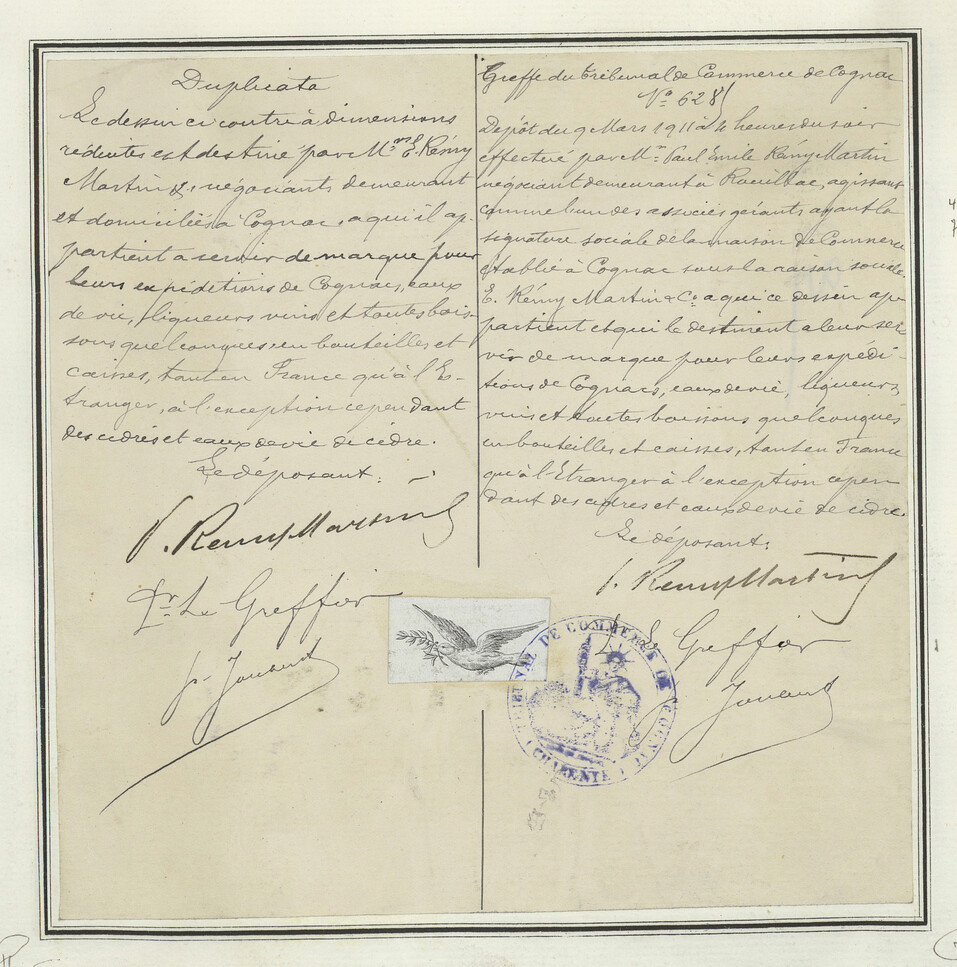 Duplicata
Le dessin ci contre à dimensions
réduites est destiné par M.rs E. Rémy
Martin & C.°, négociants demeurant
et domiciliés à Cognac, a qui il ap-
partient a servir de marque pour
leurs expéditions de Cognacs, eaux
de vie, liqueurs vins et toutes bois-
sons quelconques en bouteilles et
caisses, tant en France qu'à l'E-
tranger, à l'exception cependant
des cidres et eaux de vie de cidre.
Le déposant:
P. Remy Martin
Pr. Le Greffier
Greffe du Tribunal de Commerce de Cognac
N° 6281
Dépôt du 9 Mars 1911 à 4 heures du soir
effectué par Mr. Paul Emile Rémy Martin
négociant demeurant à Rouillac, agissant
comme l'un des associés gérants ayant la
signature sociale de la maison de Commerce
établie à Cognac sous la raison sociale
E. Rémy Martin & C.° a qui ce dessin ap-
partient et qui le destinent a leur ser-
vir de marque pour leurs expédi-
tions de Cognacs, eaux de vie, liqueurs,
vins et toutes boissons quelconques
en bouteilles et caisses, tant en France
qu'à l'Etranger à l'exception cepen
dant des cidres et eaux de vie de cidre.
Le déposant:
P. Remy Martin
Le Greffier
TRIBUNAL DE COMMERCE DE COGNAC
(CHARENTE)